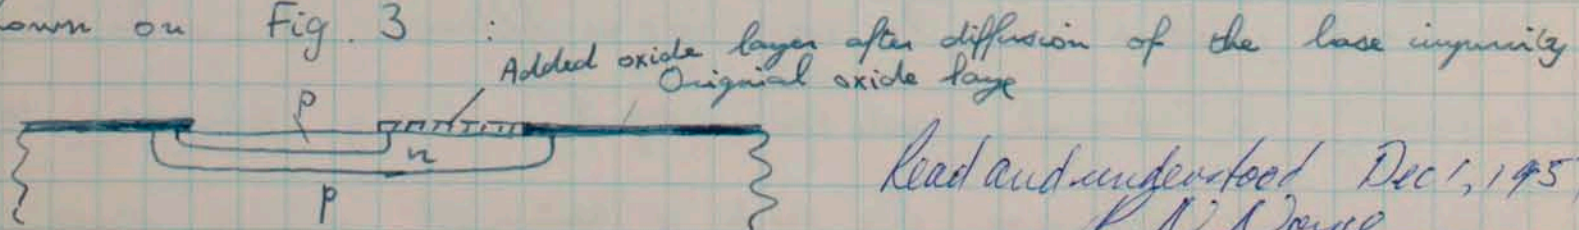 own on Fig. 3 :
Added oxide layer after diffusion of the base impurity
Original oxide laye
p
n
p
Read and understood Dec 1, 195
R N Noyce